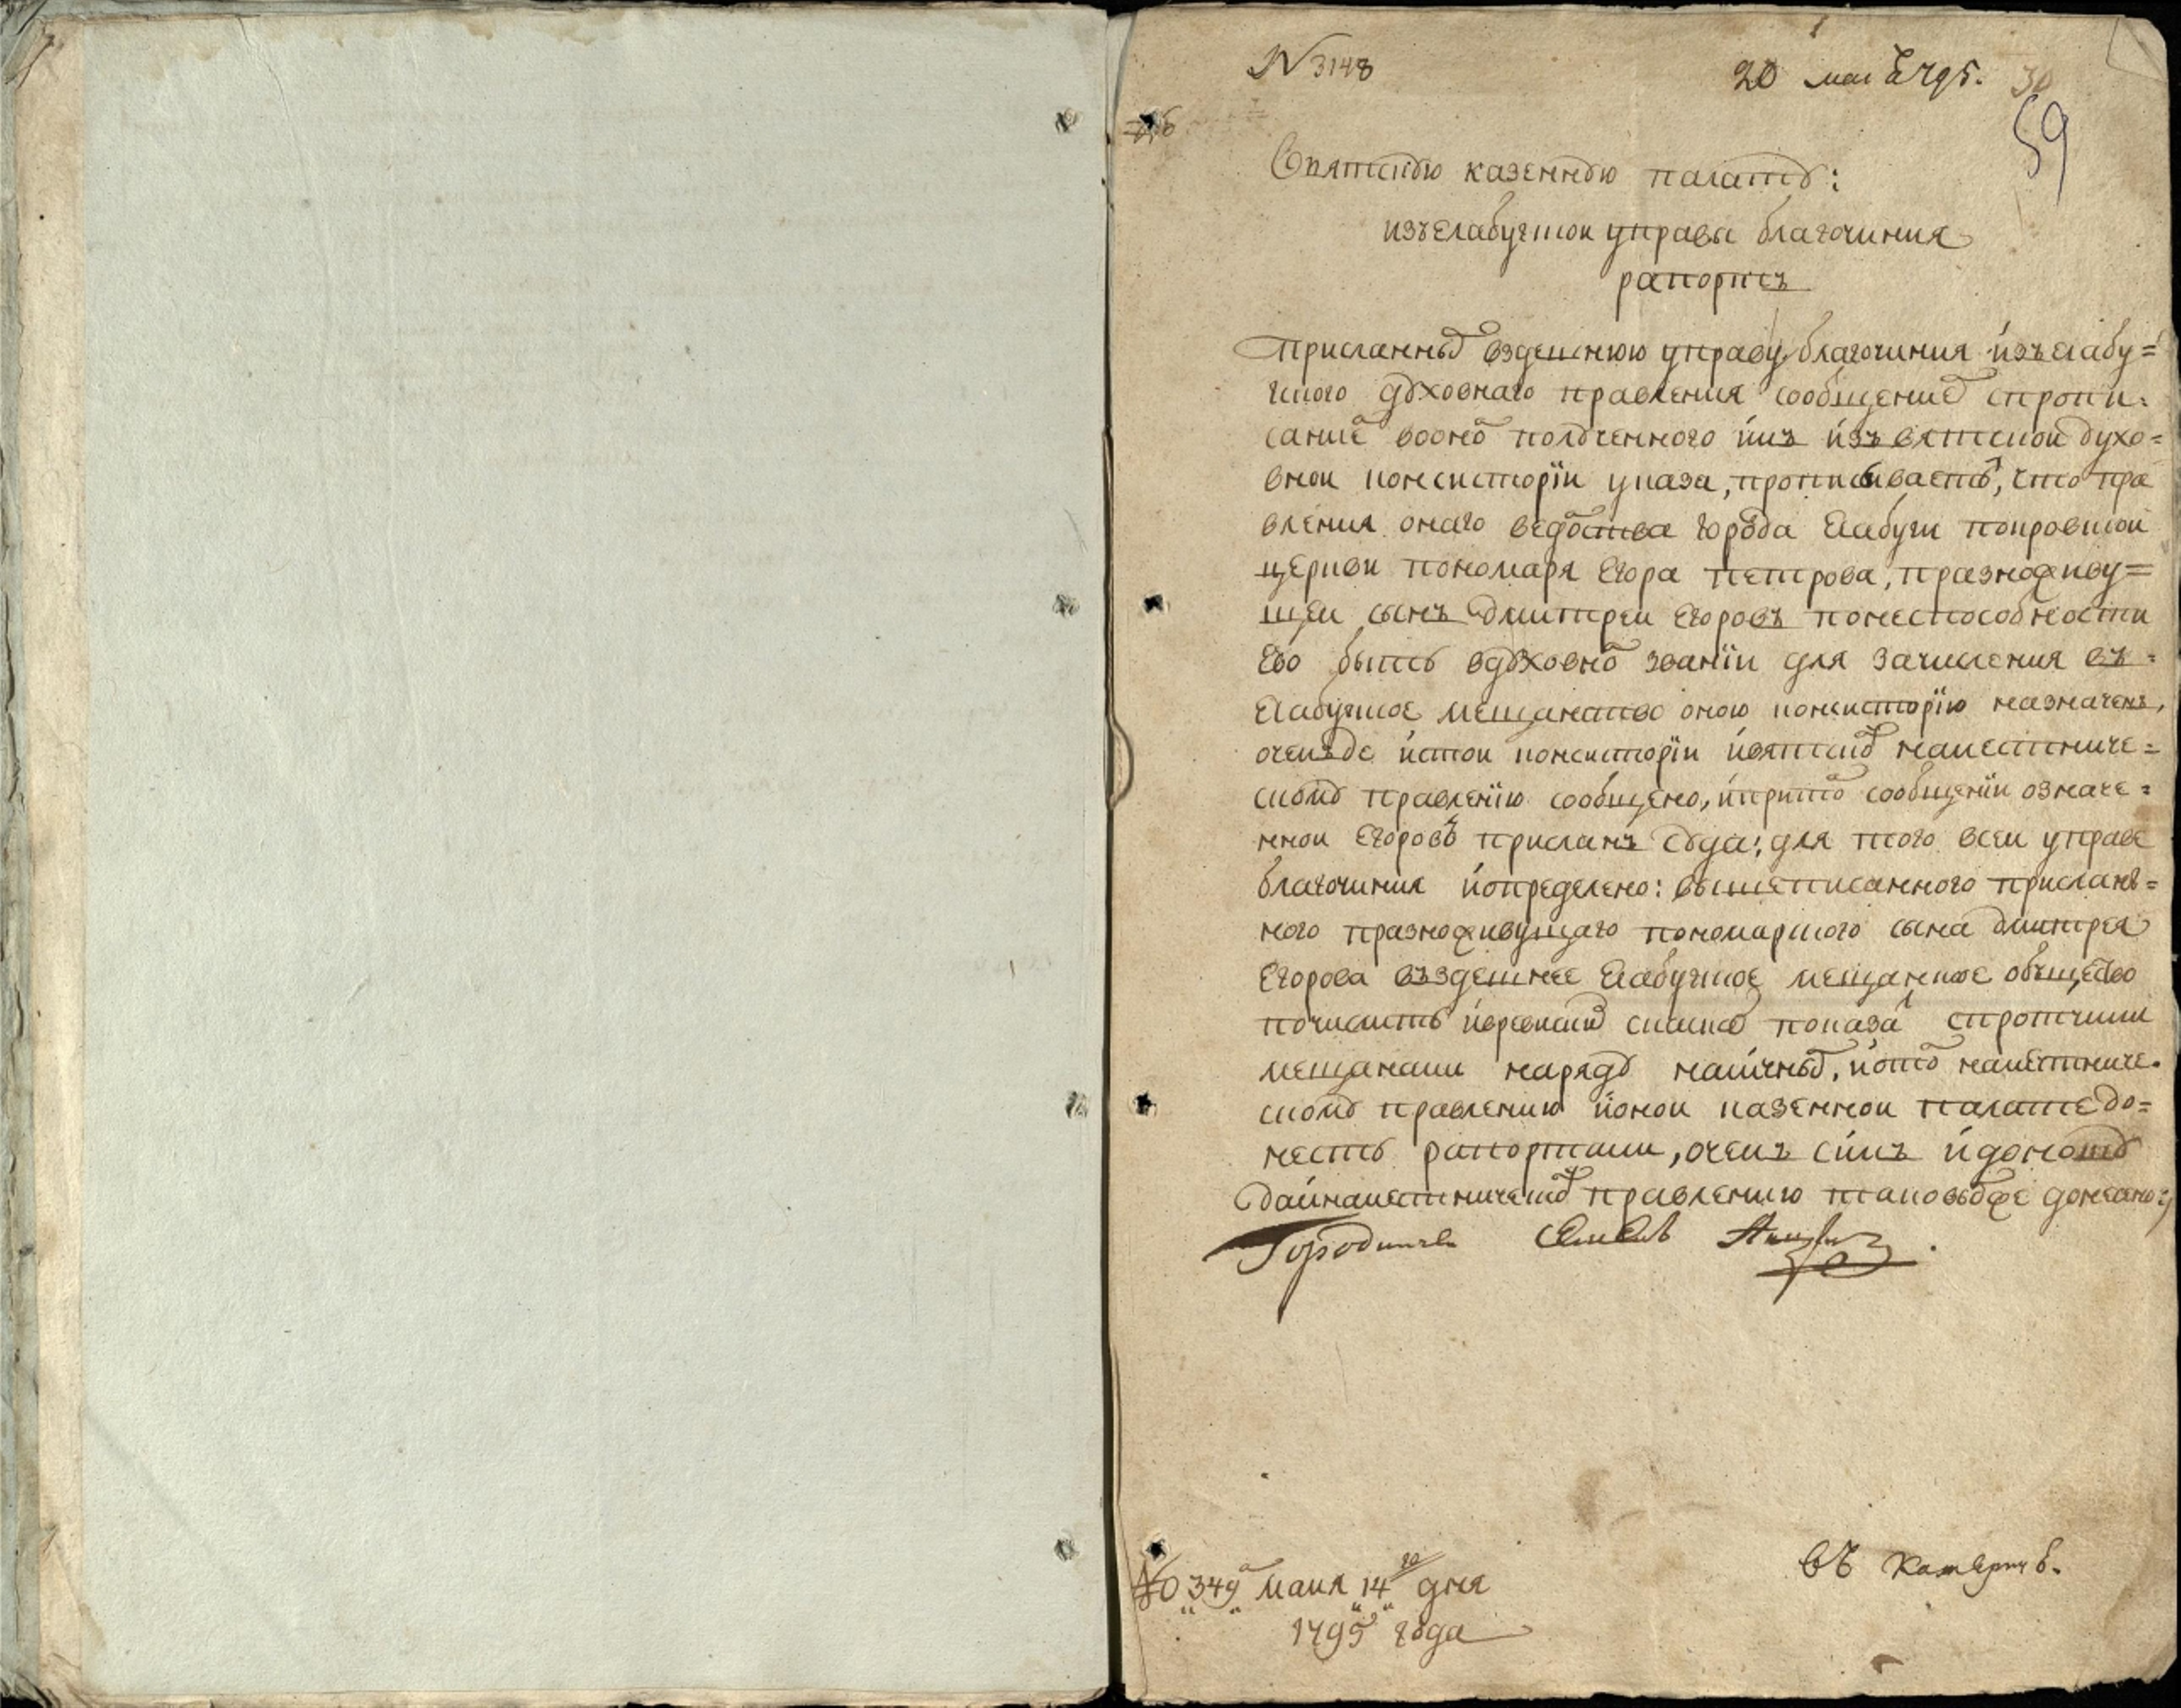 N 3148
20 мая 1795.
30
59
Ввятскую казенную палату:
изъелабужской управы благочиния
рапортъ
присланным вздешнюю управу благочиния изъелабу=
жского духовнаго правления сообщением спропи=
саниемъ воономъ полученного имъ изъ вятской духо=
вной консисторіи указа, прописываетъ, что пра
вления онаго ведомства города Елабуги покровской
церкви пономаря Егора Петрова, празножиѵу=
щей сынъ Дмитреи Егоровъ понеспособности
Его быть вдуховномъ званіи для зачисления въ=
Елабужское мещанство оною консисторіею назначенъ,
очемъде истой консисторіи ивятскому наместниче=
скому правленію сообщено, ипритомъ сообщении означе=
нной Егоровъ присланъ суда; для того всей управе
благочиния иопределено: вышеписанного прислан=
ного празноживущаго пономарского сына дмитрея
Егорова въздешнее Елабужское мещанское общество
почислить иревискимъ скаском показавъ спротчими
мещанами нарядъ наличным, иотомъ наместниче=
скому правлению ионой казенной палате до=
несть рапортами, очемъ симъ идоноситъ
даинаместническому правлению таковымже донесено
Городничей
№ 349 маия 14 го дня
1795 года